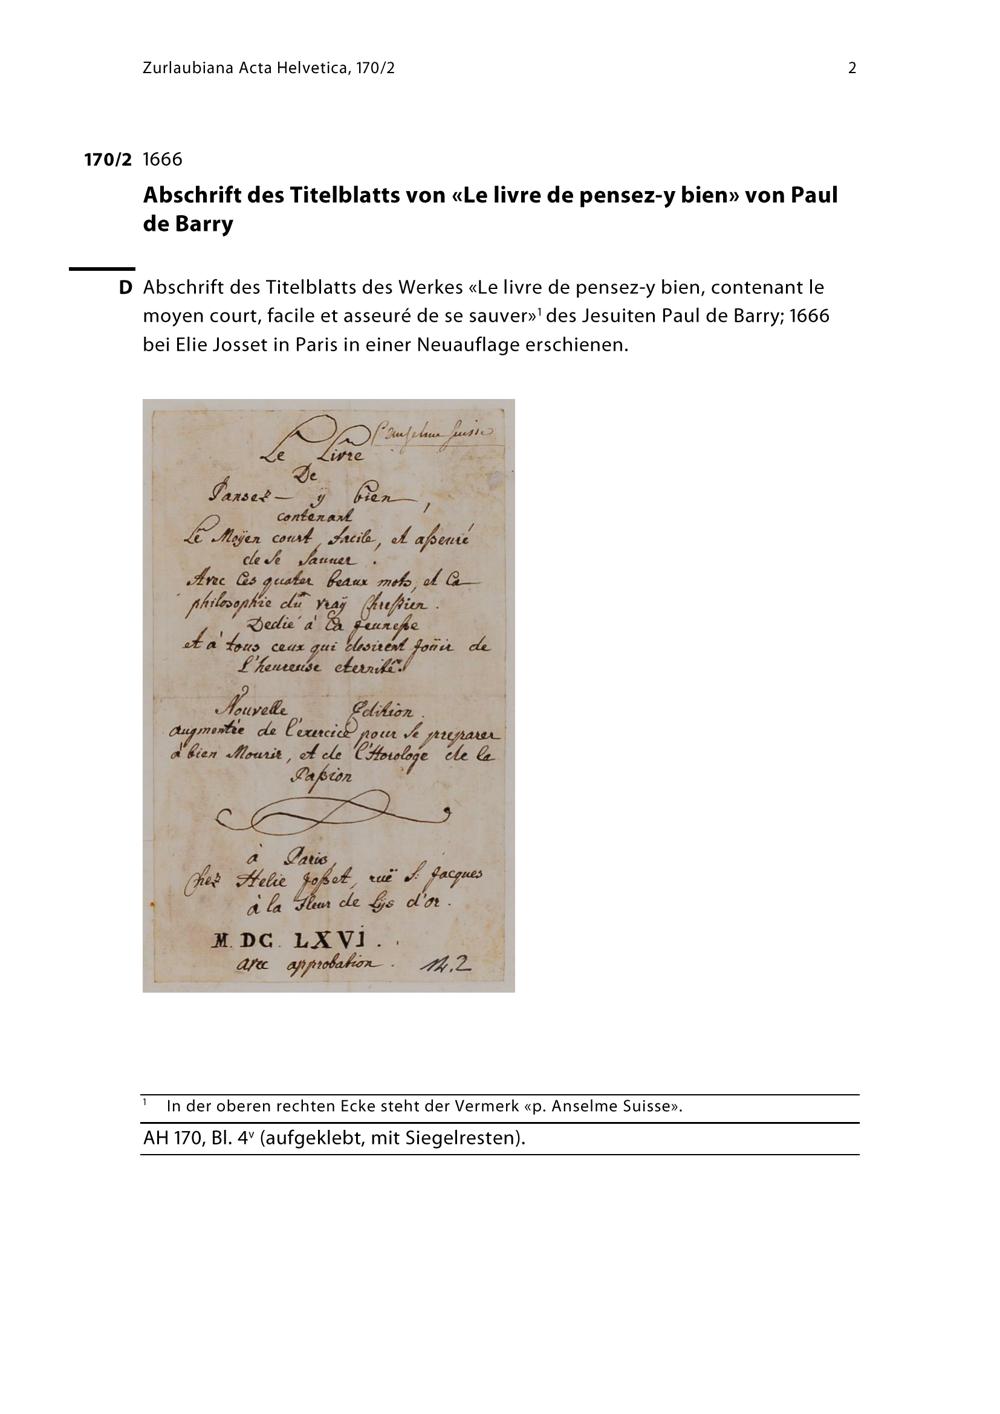 Zurlaubiana Acta Helvetica, 170/2 2
170/2 1666
Abschrift des Titelblatts von «Le livre de pensez-y bien» von Paul
de Barry
D Abschrift des Titelblatts des Werkes «Le livre de pensez-y bien, contenant le
moyen court, facile et asseuré de se sauver»¹ des Jesuiten Paul de Barry; 1666
bei Elie Josset in Paris in einer Neuauflage erschienen.
p. anselme suisse
Le Livre
De
Pansez – ÿ bien,
contenant
Le Moÿen court, facile, et asseuré
de se sauuer.
Avec Ces quater beaux mots, et La
philosophie du vraÿ Chrestien.
Dedié à La jeunesse
et à tous ceux qui desirent joüir de
L'heureuse eternité.
Nouvelle Edition.
augmentée de l'exercice pour se preparer
à bien Mourir, et de l'Horologe de la
Passion
à Paris,
Chez Helie Josset, ruë S. Jacques
à la Fleur de Lÿs d'or.
M. DC. LXVI.
avec approbation. 14.2
¹ In der oberen rechten Ecke steht der Vermerk «p. Anselme Suisse».
AH 170, Bl. 4ᵛ (aufgeklebt, mit Siegelresten).